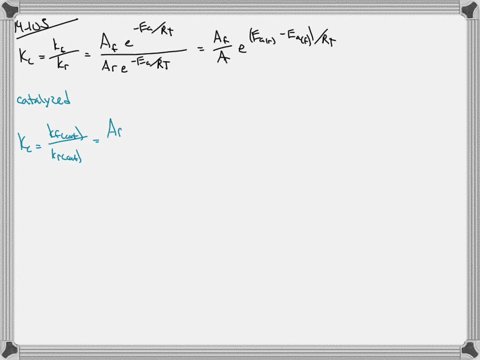 14.105
K_c = k_f/k_r = A_f e^{-Ea/RT} / A_r e^{-Ea/RT} = A_f/A e^{(Ea(r) - Ea(f))/RT}
catalyzed
K_c = k_{f(cat)}/k_{r(cat)} = Ar